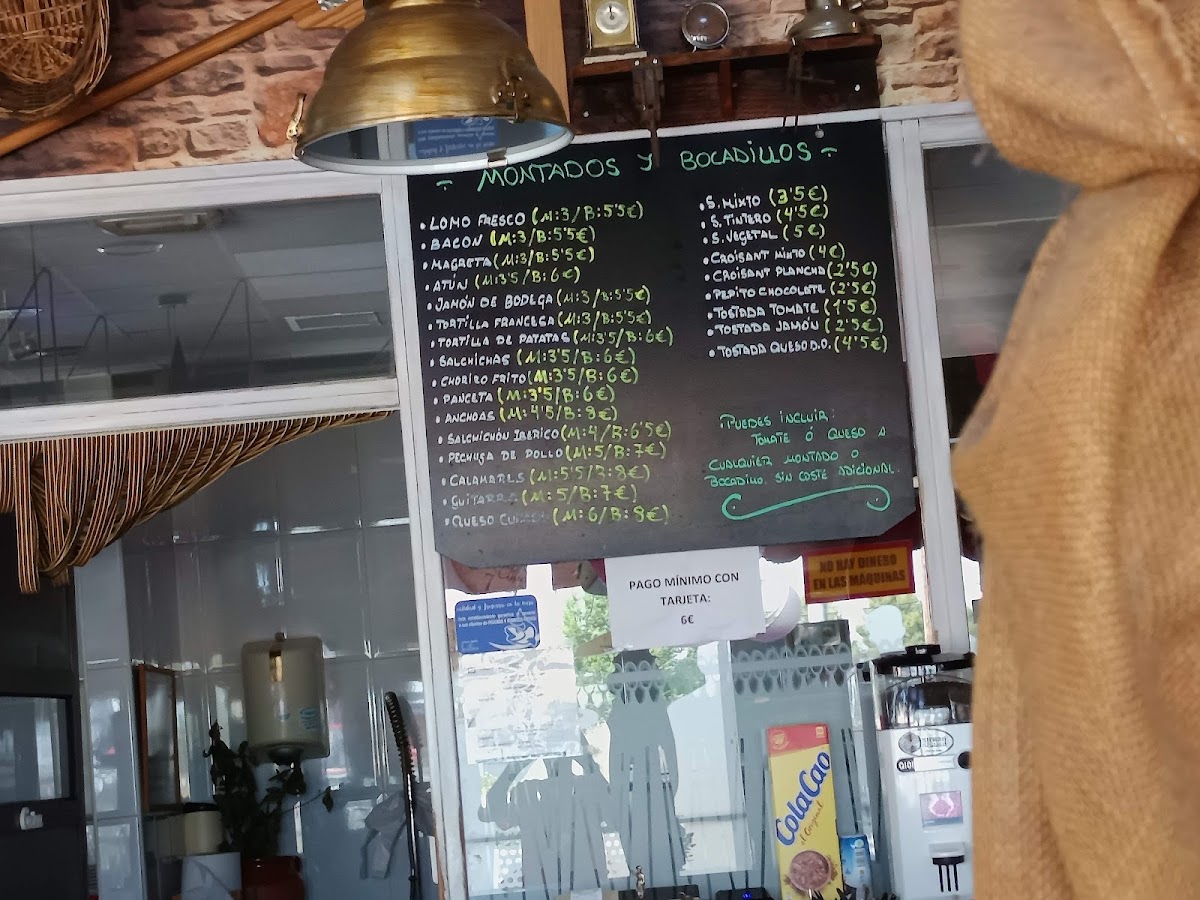 ÷ MONTADOS Y BOCADILLOS ÷
• LOMO FRESCO (M:3/B:5'5€)
• BACON (M:3/B:5'5€)
• MAGRETA (M:3/B:5'5€)
• ATÚN (M:3'5/B:6€)
• JAMÓN DE BODEGA (M:3/B:5'5€)
• TORTILLA FRANCESA (M:3/B:5'5€)
• TORTILLA DE PATATAS (M:3'5/B:6€)
• SALCHICHAS (M:3'5/B:6€)
• CHORIZO FRITO (M:3'5/B:6€)
• PANCETA (M:3'5/B:6€)
• ANCHOAS (M:4'5/B:8€)
• SALCHICHÓN IBERICO (M:4/B:6'5€)
• PECHUGA DE POLLO (M:5/B:7€)
• CALAMARES (M:5'5/B:8€)
• GUITARRA (M:5/B:7€)
• QUESO (M:6/B:8€)
• S. MIXTO (3'5€)
• S. TINTERO (4'5€)
• S. VEGETAL (5€)
• CROISANT MIXTO (4€)
• CROISANT PLANCHA (2'5€)
• PEPITO CHOCOLATE (2'5€)
• TOSTADA TOMATE (1'5€)
• TOSTADA JAMÓN (2'5€)
• TOSTADA QUESO D.O. (4'5€)
¡PUEDES INCLUIR:
TOMATE Ó QUESO A
CUALQUIER MONTADO O
BOCADILLO, SIN COSTE ADICIONAL.
PAGO MÍNIMO CON
TARJETA:
6€
NO HAY DINERO
EN LAS MÁQUINAS
ColaCao
el Original